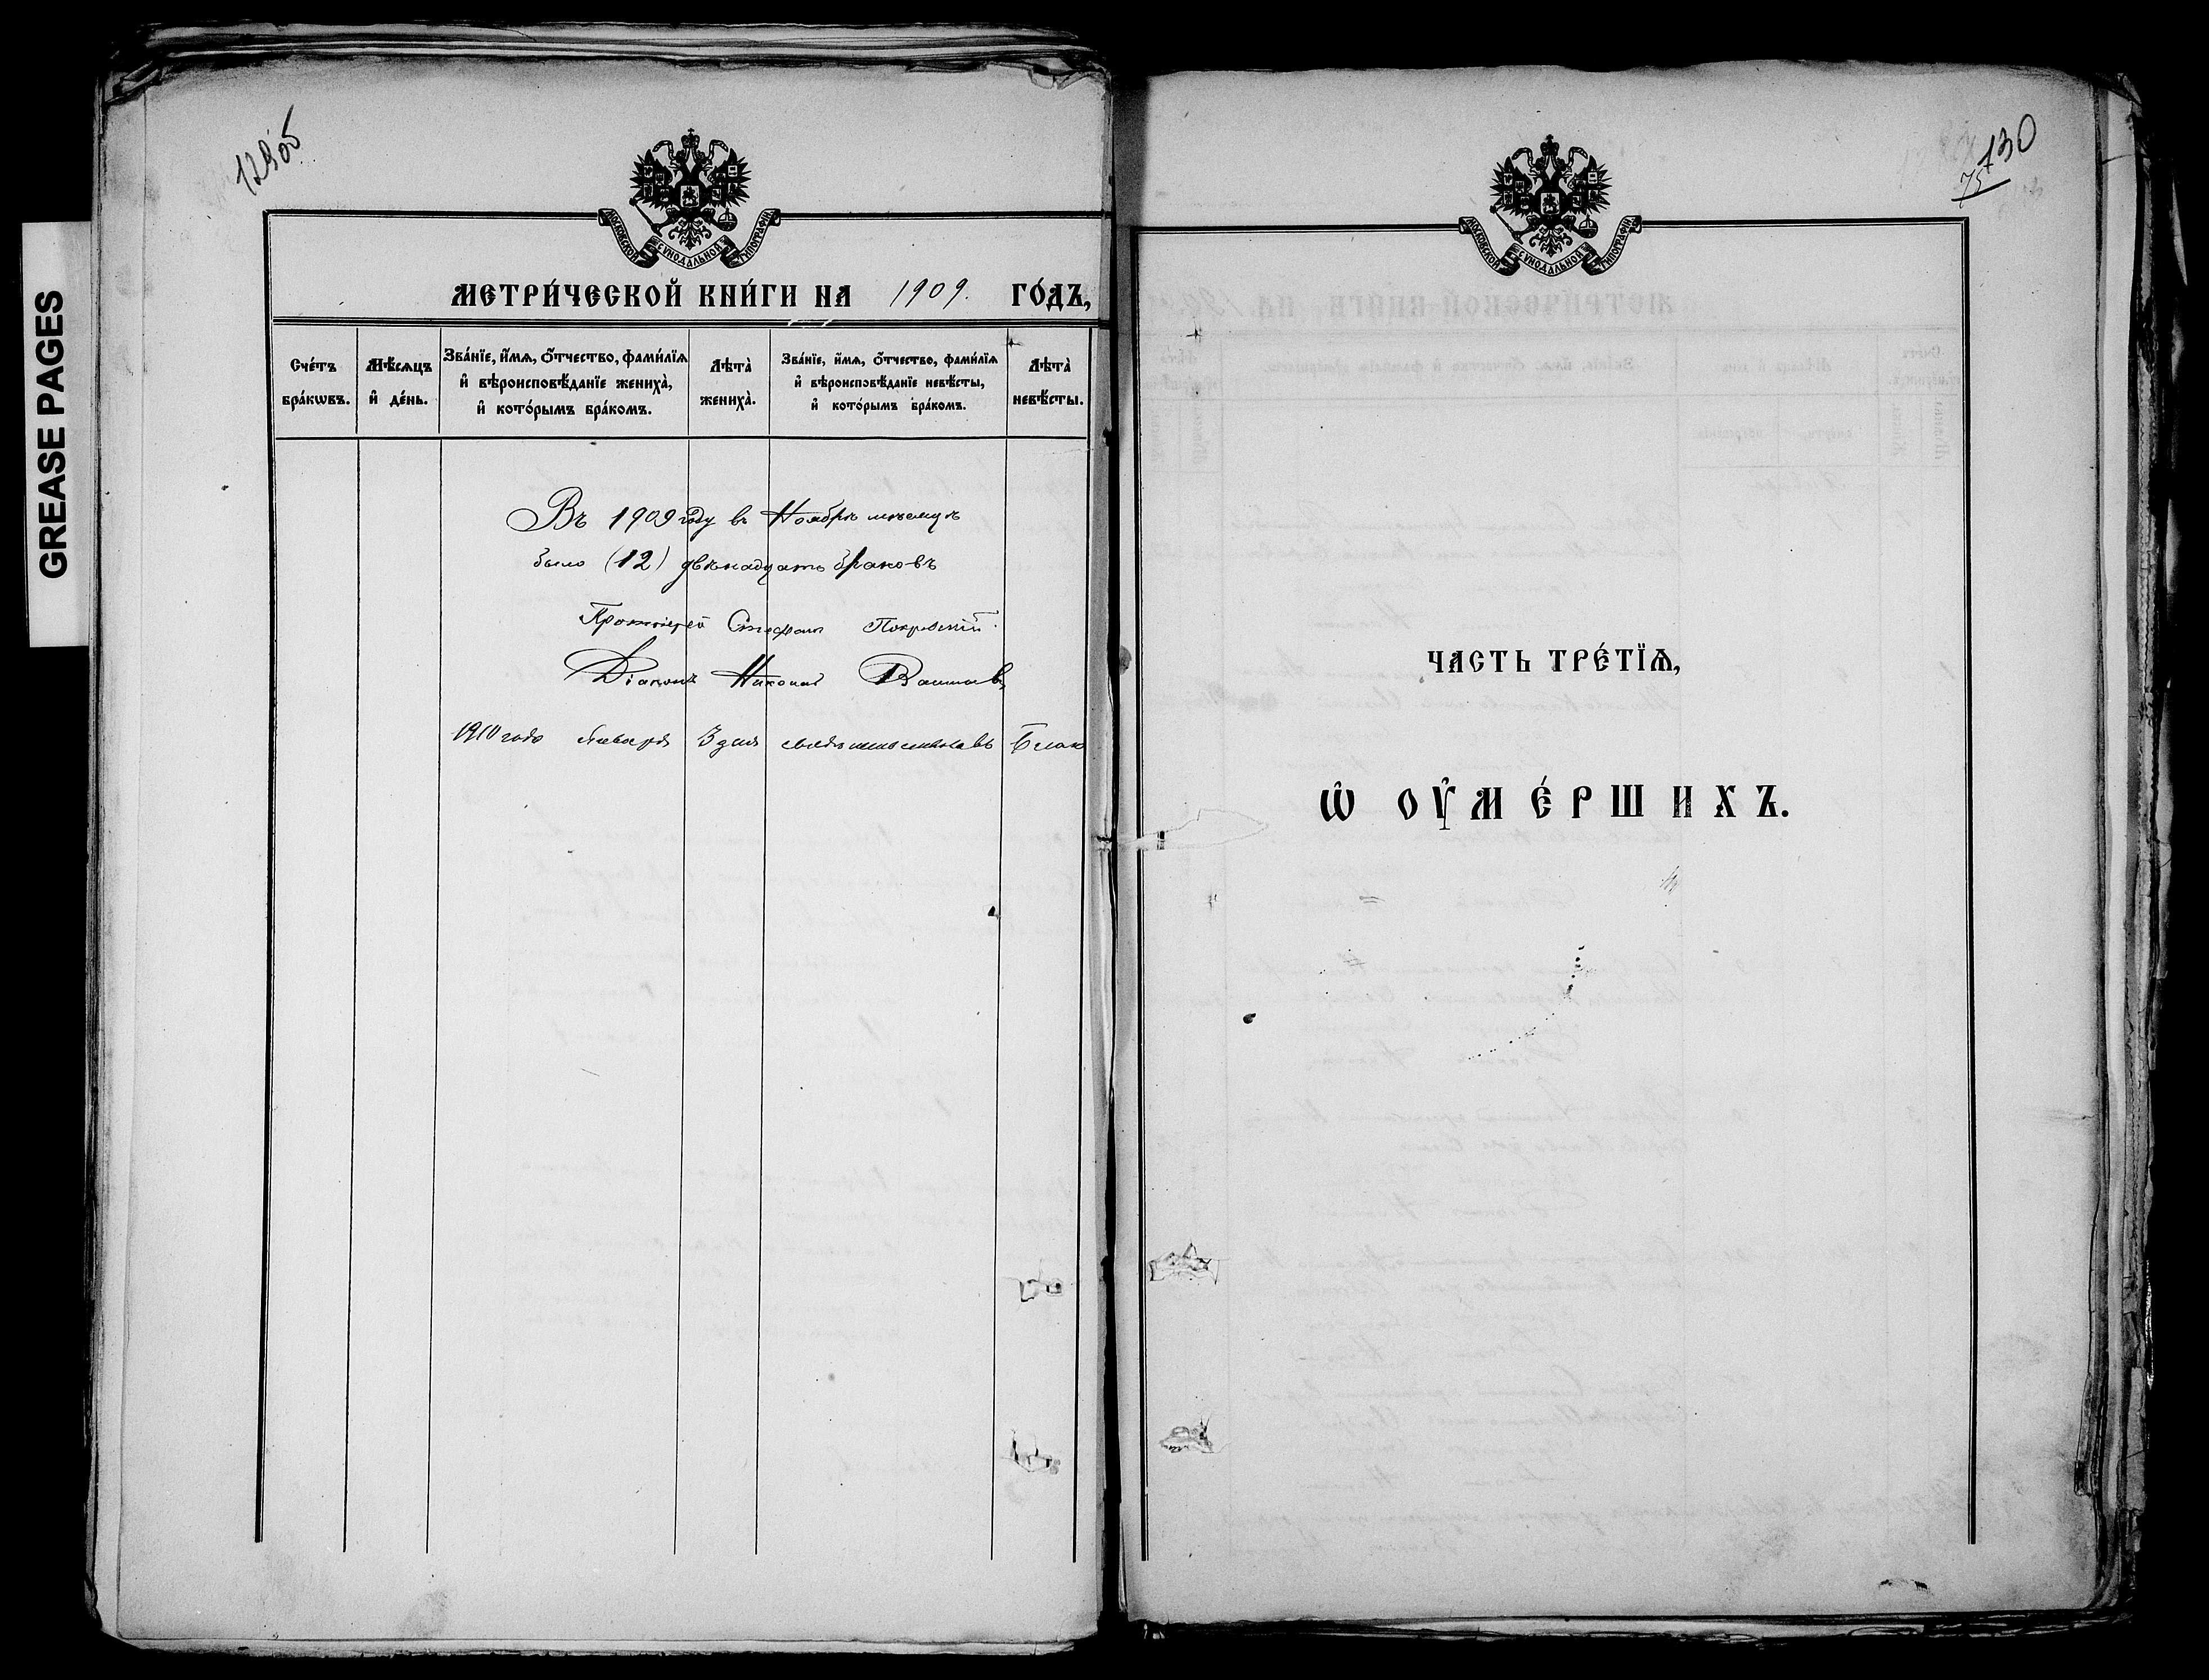 GREASE PAGES
129об
МОСКОВСКОЙ СѴНОДАЛЬНОЙ ТИПОГРАФІИ
МЕТРИ́ЧЕСКОЙ КНИ́ГИ НА 1909. ГО́ДЪ,
Сче́тъ бра́кѡвъ.
Мѣ́сѧцъ и҆ де́нь.
Зва́нїе, и҆́мѧ, ѻ҆́тчество, фами́лїѧ и҆ вѣроисповѣ́данїе жениха̀, и҆ кото́рымъ бра́комъ.
Лѣта̀ жениха̀.
Зва́нїе, и҆́мѧ, ѻ҆́тчество, фами́лїѧ и҆ вѣроисповѣ́данїе невѣ́сты, и҆ кото́рымъ бра́комъ.
Лѣта̀ невѣ́сты.
Въ 1909 году въ Ноябрѣ мѣсяцѣ
было (12) двѣнадцать браковъ
Протоіерей Стефанъ Покровскій
Діаконъ Николай
1910 года Января 3 дня
130
75
МОСКОВСКОЙ СѴНОДАЛЬНОЙ ТИПОГРАФІИ
ЧАСТЬ ТРЕ́ТЇѦ,
Ѡ҆ ОУ҆МЕ́РШИХЪ.